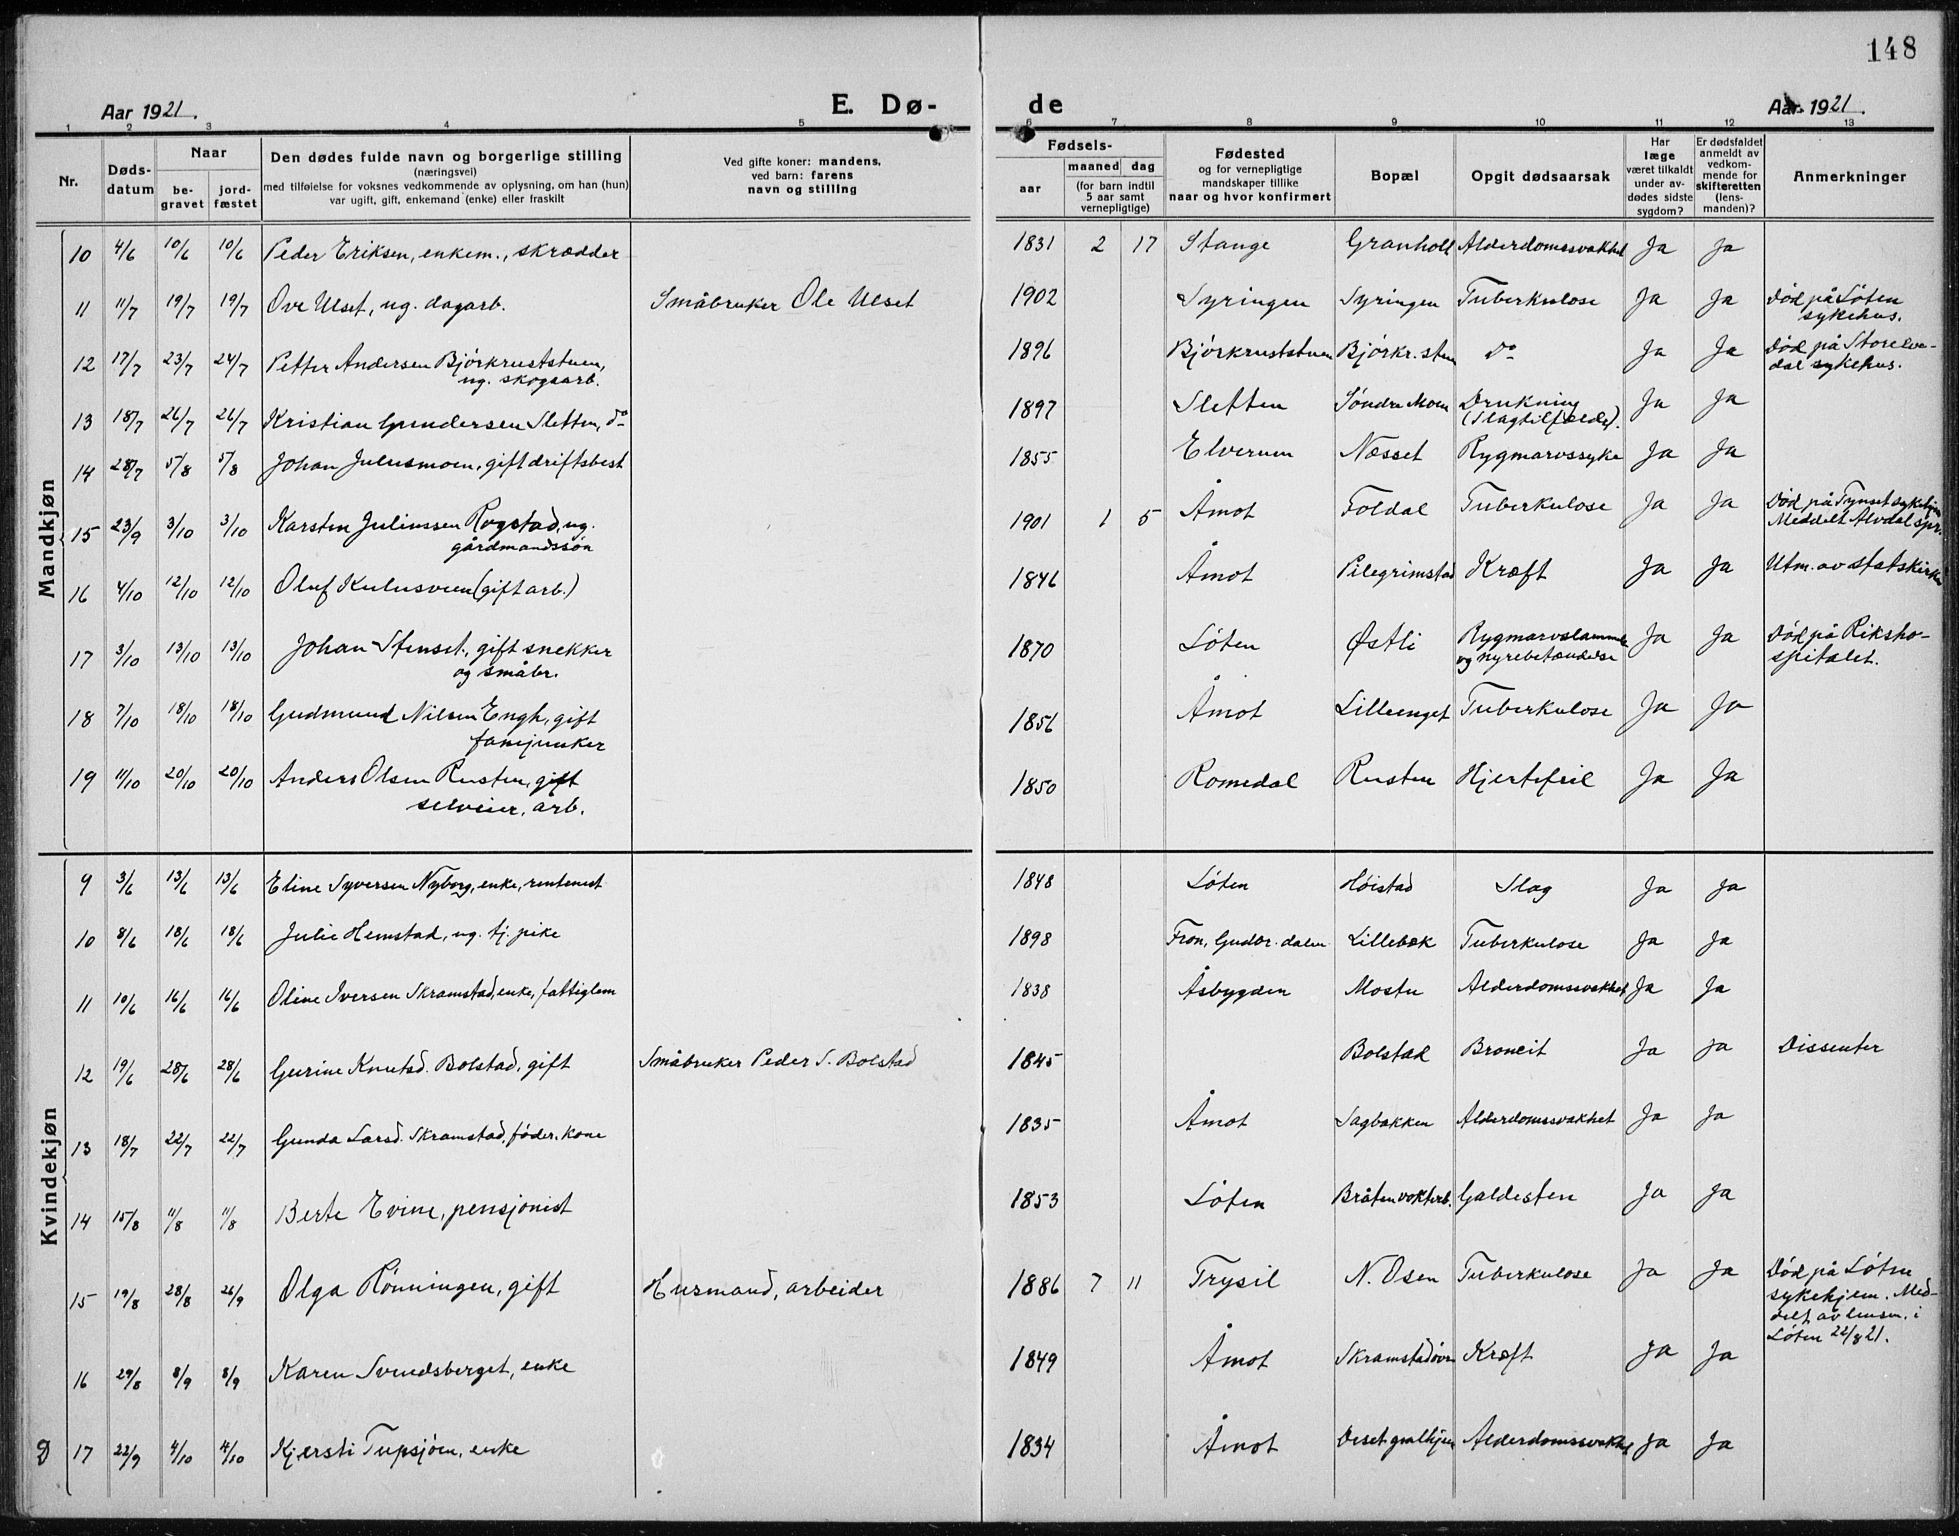 148
Aar 1921. E. Dø- de Aar 1921.
1 2 3 4 5 6 7 8 9 10 11 12 13
Nr. Døds-datum Naar be-gravet jord-fæstet Den dødes fulde navn og borgerlige stilling (næringsvei) med tilføielse for voksnes vedkommende av oplysning, om han (hun) var ugift, gift, enkemand (enke) eller fraskilt Ved gifte koner: mandens, ved barn: farens navn og stilling Fødsels- aar maaned dag (for barn indtil 5 aar samt vernepligtige) Fødested og for vernepligtige mandskaper tillike naar og hvor konfirmert Bopæl Opgit dødsaarsak Har læge været tilkaldt under av-dødes sidste sygdom? Er dødsfaldet anmeldt av vedkom-mende for skifteretten (lens-manden)? Anmerkninger
Mandkjøn
10 4/6 10/6 10/6 Peder Eriksen, enkem., skrædder 1831 2 17 Stange Granholt Alderdomssvakhet Ja Ja
11 11/7 19/7 19/7 Ove Ulset, ug. dagarb. Småbruker Ole Ulset 1902 Syringen Syringen Tuberkulose Ja Ja Død på Løten sykehus.
12 17/7 23/7 24/7 Petter Andersen Bjørkruststuen, ug. skogsarb. 1896 Bjørkruststuen Bjørkr.stuen Do Ja Ja Død på Storelve-dal sykehus.
13 18/7 26/7 26/7 Kristian Gundersen Sletten, do 1897 Sletten Søndre Moen Drukning (Slagtilfælde). Ja Ja
14 28/7 5/8 5/8 Johan Julusmoen, gift driftsbest 1855 Elverum Næsset Rygmarvssyke Ja Ja
15 23/9 3/10 3/10 Karsten Juliussen Rogstad, ug. gårdmandssøn 1901 1 5 Åmot Foldal Tuberkulose Ja Ja Død på Tynset sykehjem Meddelt Alvdal spr.
16 4/10 12/10 12/10 Oluf Kulusveen (gift arb.) 1846 Åmot Pilegrimstad Kræft Ja Ja Utm. av statskirken
17 3/10 13/10 13/10 Johan Stenset, gift snekker og småbr. 1870 Løten Østli Rygmarvslammelse og nyrebetændelse Ja Ja Død på Riksho-spitalet.
18 7/10 18/10 18/10 Gudmund Nilsen Engh, gift fanejunker 1856 Åmot Lilleenget Tuberkulose Ja Ja
19 11/10 20/10 20/10 Anders Olsen Rusten, gift selveier, arb. 1850 Romedal Rusten Hjertefeil Ja Ja
Kvindekjøn
9 3/6 13/6 13/6 Eline Syversen Nyborg, enke, rentenist 1848 Løten Høistad Slag Ja Ja
10 8/6 18/6 18/6 Julie Hemstad, ug. tj. pike 1898 Fron, Gudbr. dalen Lillebæk Tuberkulose Ja Ja
11 10/6 16/6 16/6 Oline Iversen Skramstad, enke, fattiglem 1838 Åsbygden Mostu Alderdomssvakhet Ja Ja
12 19/6 28/6 28/6 Gurine Knutsd. Bolstad, gift Småbruker Peder S. Bolstad 1845 Bolstad Broncit Ja Ja Dissenter
13 18/7 22/7 22/7 Gunda Larsd. Skramstad, føder. kone 1835 Åmot Sagbakken Alderdomssvakhet Ja Ja
14 15/8 11/8 11/8 Berte Evine, pensjonist 1853 Løten Bråten vokterb. Galdesten Ja Ja
15 19/8 28/8 26/9 Olga Rønningen, gift Husmand, arbeider 1886 7 11 Trysil N. Osen Tuberkulose Ja Ja Død på Løten sykehjem. Med-delt av lensm. i Løten 22/8 21.
16 29/8 8/9 8/9 Karen Svendsberget, enke 1849 Åmot Skramstadøvre Kræft Ja Ja
17 22/9 4/10 4/10 Kjersti Tupsjøen, enke 1834 Åmot Deset gmlhjem Alderdomssvakhet Ja Ja